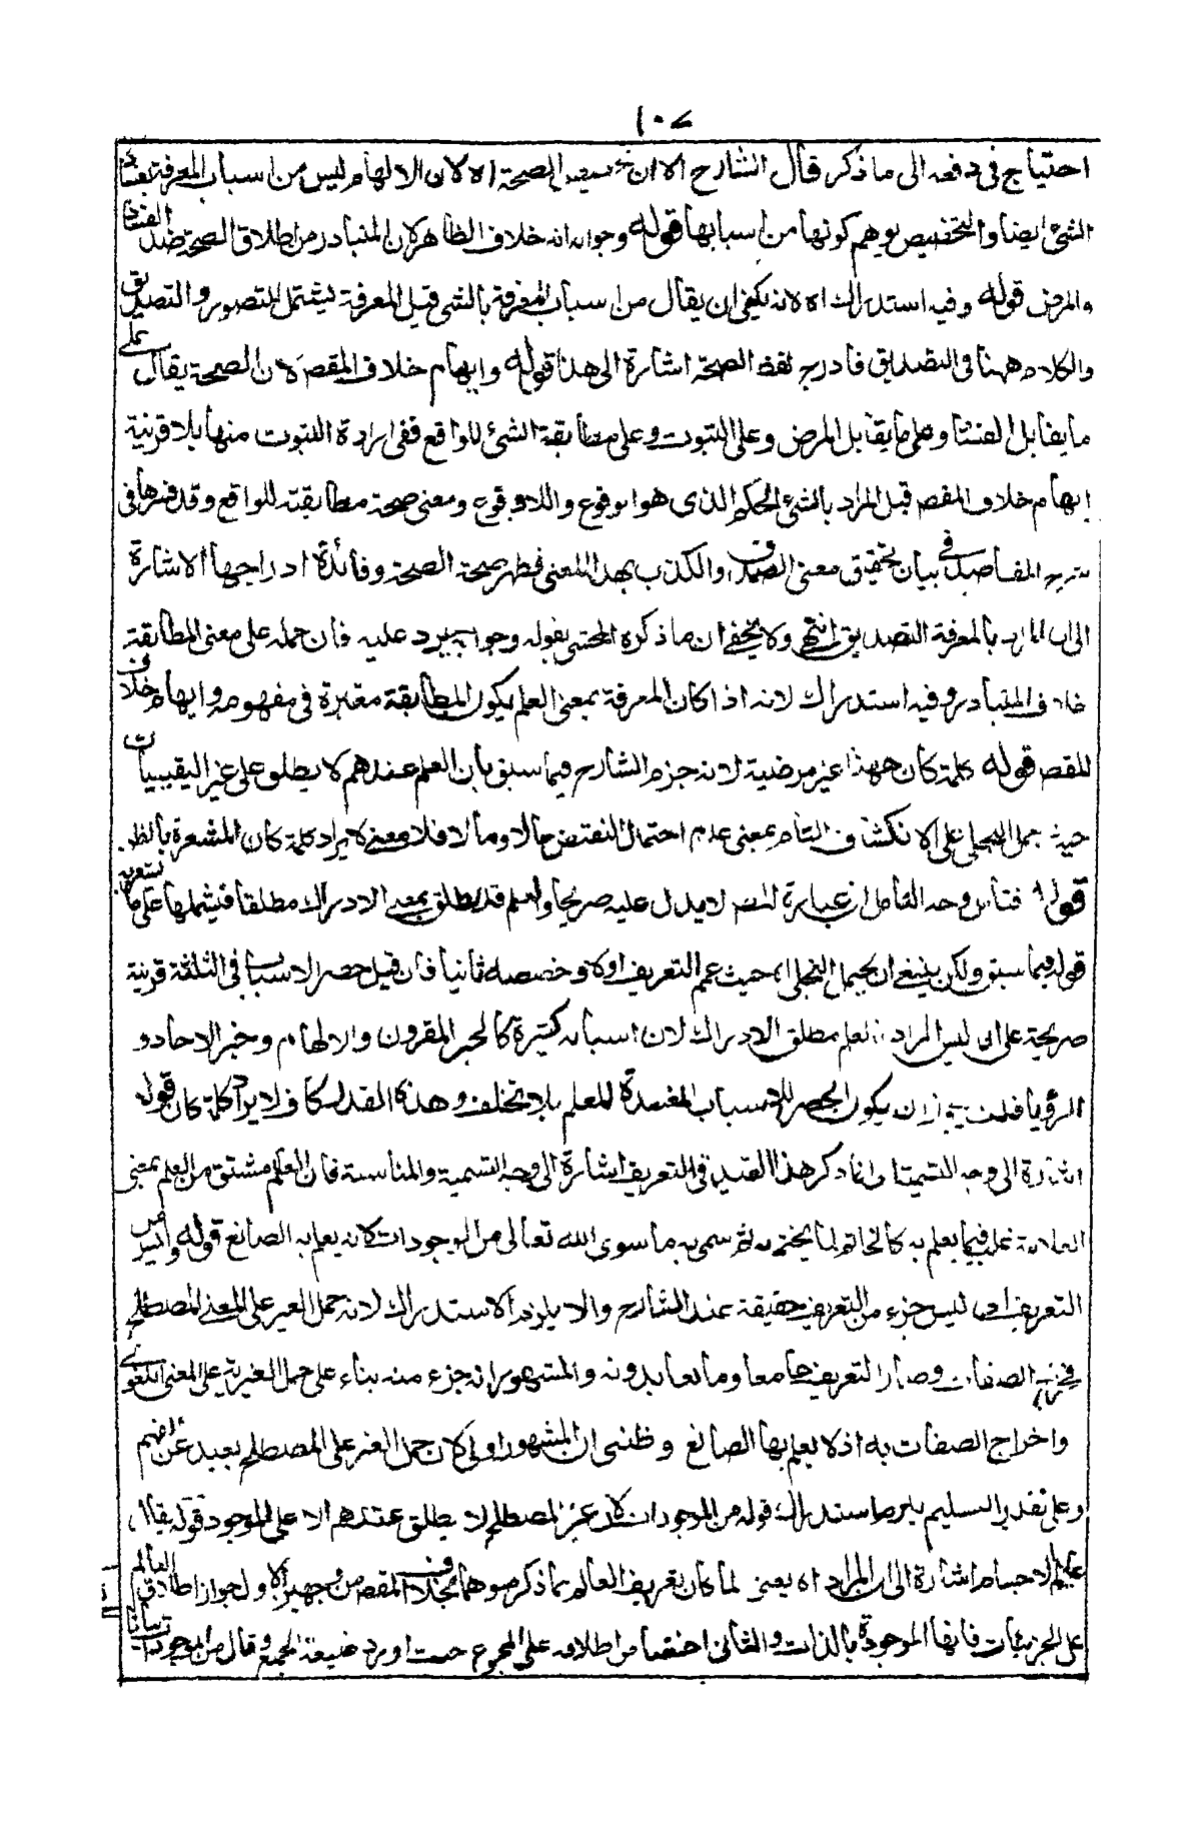 ١٠٧
احتياج في دفعه الى ما ذكر قال الشارح الا ان تخصيص الصحة اه لان الالهام ليس من اسباب المعرفة بفساد
الشئ ايضا والتخصيص يوهم كونها من اسبابها قوله وجوابه انه خلاف الظاهر لان المتبادر من اطلاق الصحة ضد الفساد
والمرض قوله وفيه استدراك اه لانه يكفي ان يقال من اسباب المعرفة بالشئ قيل المعرفة تشتمل التصور والتصديق
والكلام ههنا في التصديق فادرج لفظ الصحة اشارة الى هذا قوله وايهام خلاف المقص لان الصحة يقال على
ما يقابل الفساد وعلى ما يقابل المرض وعلى الثبوت وعلى مطابقة الشئ للواقع ففي ارادة الثبوت منها بلا قرينة
ايهام خلاف المقص قيل المراد بالشئ الحكم الذى هو الوقوع واللاوقوع ومعنى صحته مطابقته للواقع وقد فسرها في
شرح المقاصد في بيان تحقيق معنى الصدق والكذب بهذا المعنى فظهر صحة الصحة وفائدة ادراجها الاشارة
الى ان المراد بالمعرفة التصديق انتهى ولا يخفى ان ما ذكره المحشى بقوله وجوابه يرد عليه فان حمله على معنى المطابقة
خلاف المتبادر وفيه استدراك لانه اذا كان المعرفة بمعنى العلم يكون المطابقة معتبرة في مفهومه وايهام خلاف
المقص قوله كلمة كان ههنا غير مرضية لانه جزم الشارح فيما سبق بان العلم عندهم لا يطلق على غير اليقينيات
حيث حمل التجلى على الانكشاف التام بمعنى عدم احتمال النقيض حالا ومالا فلا معنى لايراد كلمة كان المشعرة بالظن
قوله فتأمل وجه التأمل ان عبارة المص لا يدل عليه صريحا والعلم قد يطلق بمعنى الادراك مطلقا فيشملها على ما يشعر به
قوله فيما سبق ولكن ينبغي ان يحمل التجلى اه حيث عمم التعريف اولا وخصصه ثانيا فان قيل حصر الاسباب في الثلثة قرينة
صريحة على انه ليس المراد بالعلم مطلق الادراك لان اسبابه كثيرة كالخبر المقرون والالهام وخبر الاحاد و
الرؤيا قلت يجوز ان يكون الحصر للاسباب المفيدة للعلم بلا تخلف وهذا القدر كاف لايراد كلمة كان قوله
اشارة الى وجه التسمية اه وانما ذكر هذا القيد في التعريف اشارة الى وجه التسمية والمناسبة فان العالم مشتق من العلم بمعنى
العلامة غلب فيما يعلم به كالخاتم لما يختم به ثم سمى به ما سوى الله تعالى من الموجودات لانه يعلم به الصانع قوله وليس من
التعريف اى ليس جزء من التعريف حقيقة عند الشارح والا يلزم الاستدراك لانه حمل الغير على المعنى المصطلح
فخرج الصفات وصار التعريف جامعا ومانعا بدونه والمشهور انه جزء منه بناء على حمل الغيرية على المعنى اللغوى
واخراج الصفات به اذ لا يعلم بها الصانع وظنى ان المشهور اولى لان حمل الغير على المصطلح بعيد عن الفهم
وعلى تقدير التسليم يلزم استدراك قوله من الموجودات لان غير المصطلح لا يطلق عندهم الا على الموجود قوله يقال
عالم الاجسام اشارة الى ان المراد اه يعنى لما كان تعريف العالم بما ذكر موهما بخلاف المقص من وجهين الاول جواز اطلاق العالم
على الجزئيات فانها الموجودة بالذات والثانى اختصاص اطلاقه على المجموع حيث اورد صيغة الجمع وقال من الموجودات